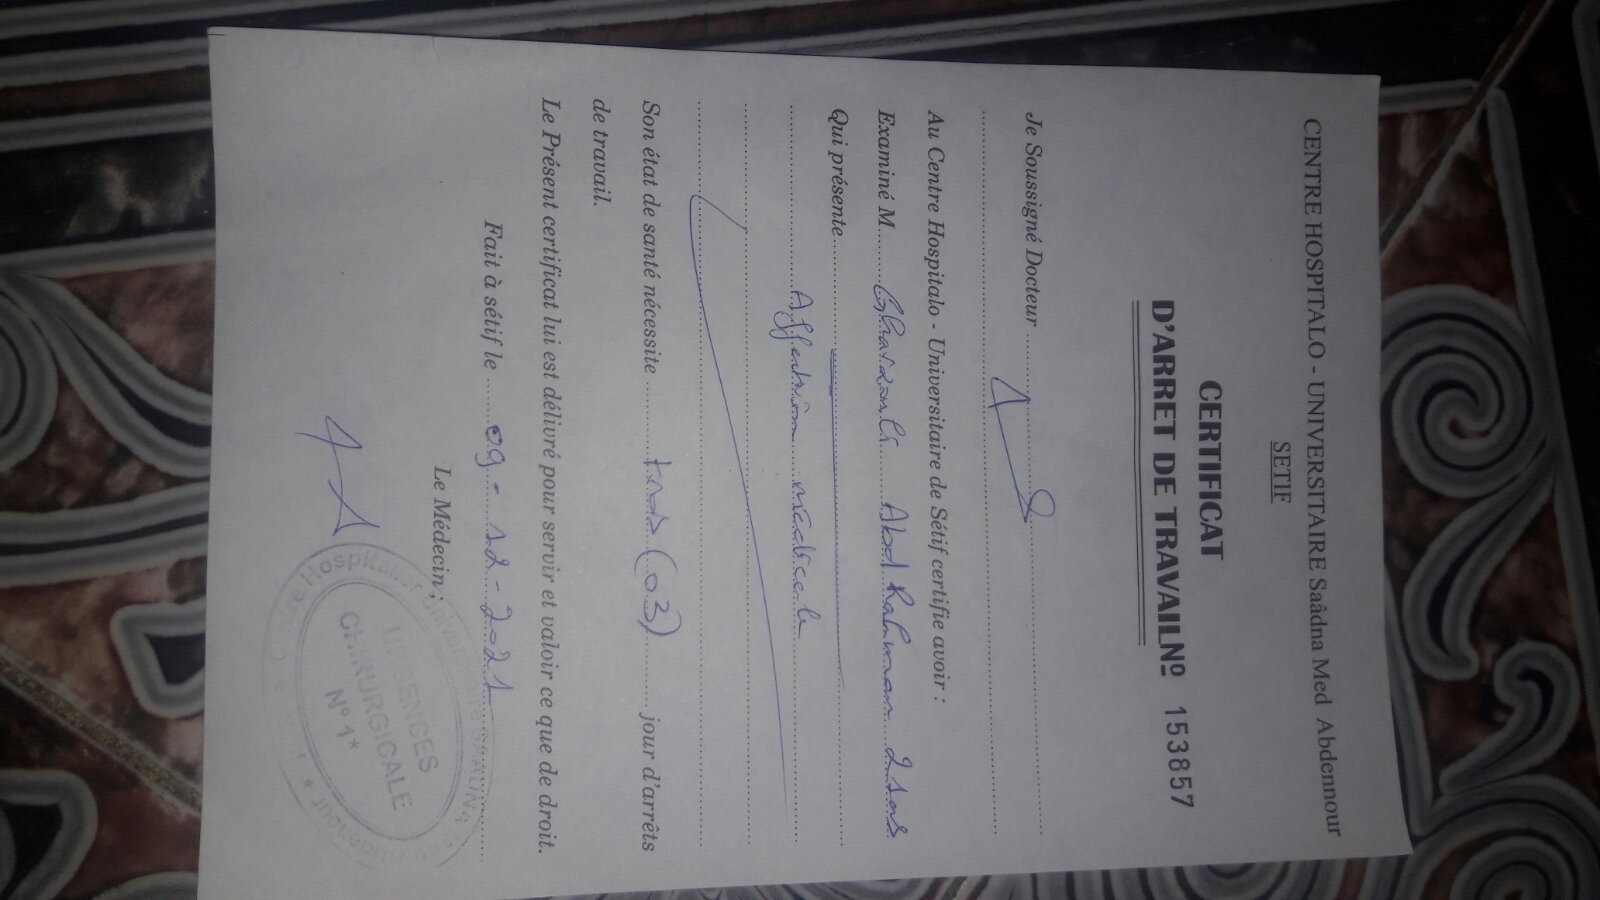 CENTRE HOSPITALO - UNIVERSITAIRE Saâdna Med Abdennour
SETIF
CERTIFICAT
D'ARRET DE TRAVAIL Nº 153857
Je Soussigné Docteur
Au Centre Hospitalo - Universitaire de Sétif certifie avoir :
Examiné M. Gharzouli Abd Rahman
Qui présente
Affection médicale
Son état de santé nécessite trois (03) jour d'arrêts
de travail.
Le Présent certificat lui est délivré pour servir et valoir ce que de droit.
Fait à sétif le 09-12-2021
Le Médecin ;
URGENCES
CHIRURGICALE
N° 1*